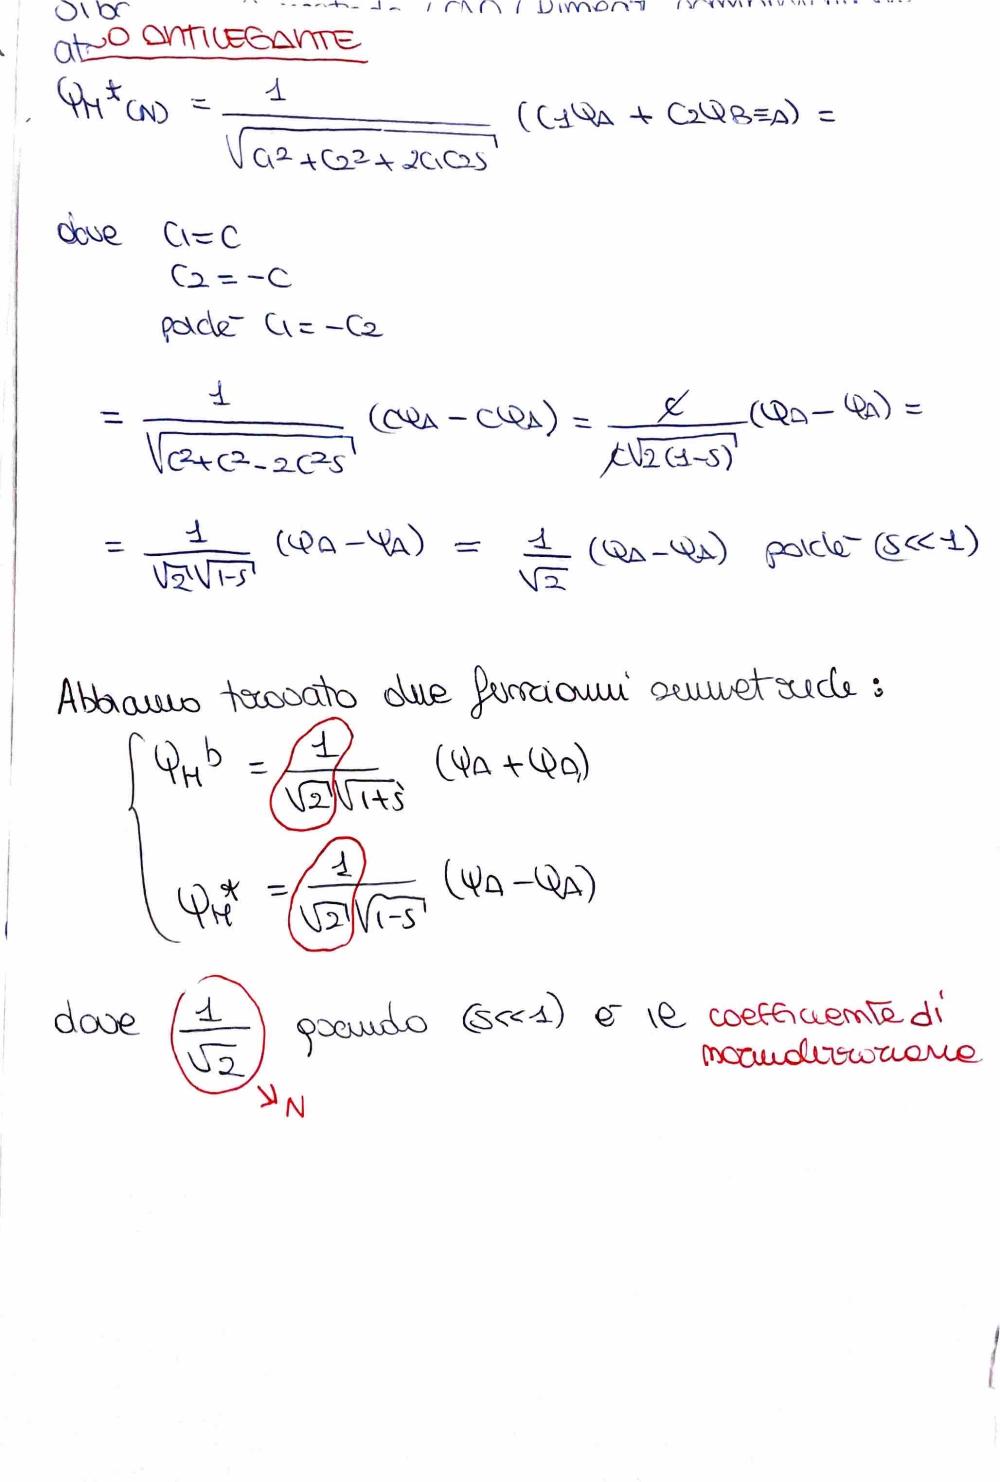 O ANTILEGANTE
φM*(N) = 1/√(C1² + C2² + 2C1C2S) (C1φA + C2φB≡A) =
dove C1 = C
C2 = -C
poiché C1 = -C2
= 1/√(C²+C²-2C²S) (CφA - CφA) = C/C√2(1-S) (φA - φA) =
= 1/√2√1-S (φA - φA) = 1/√2 (φA - φA) poiché (S<<1)
Abbiamo trovato due funzioni simmetriche:
φM^b = 1/√2√1+S (φA + φA)
φM* = 1/√2√1-S (φA - φA)
dove 1/√2 quando (S<<1) è il coefficiente di
normalizzazione
↘N